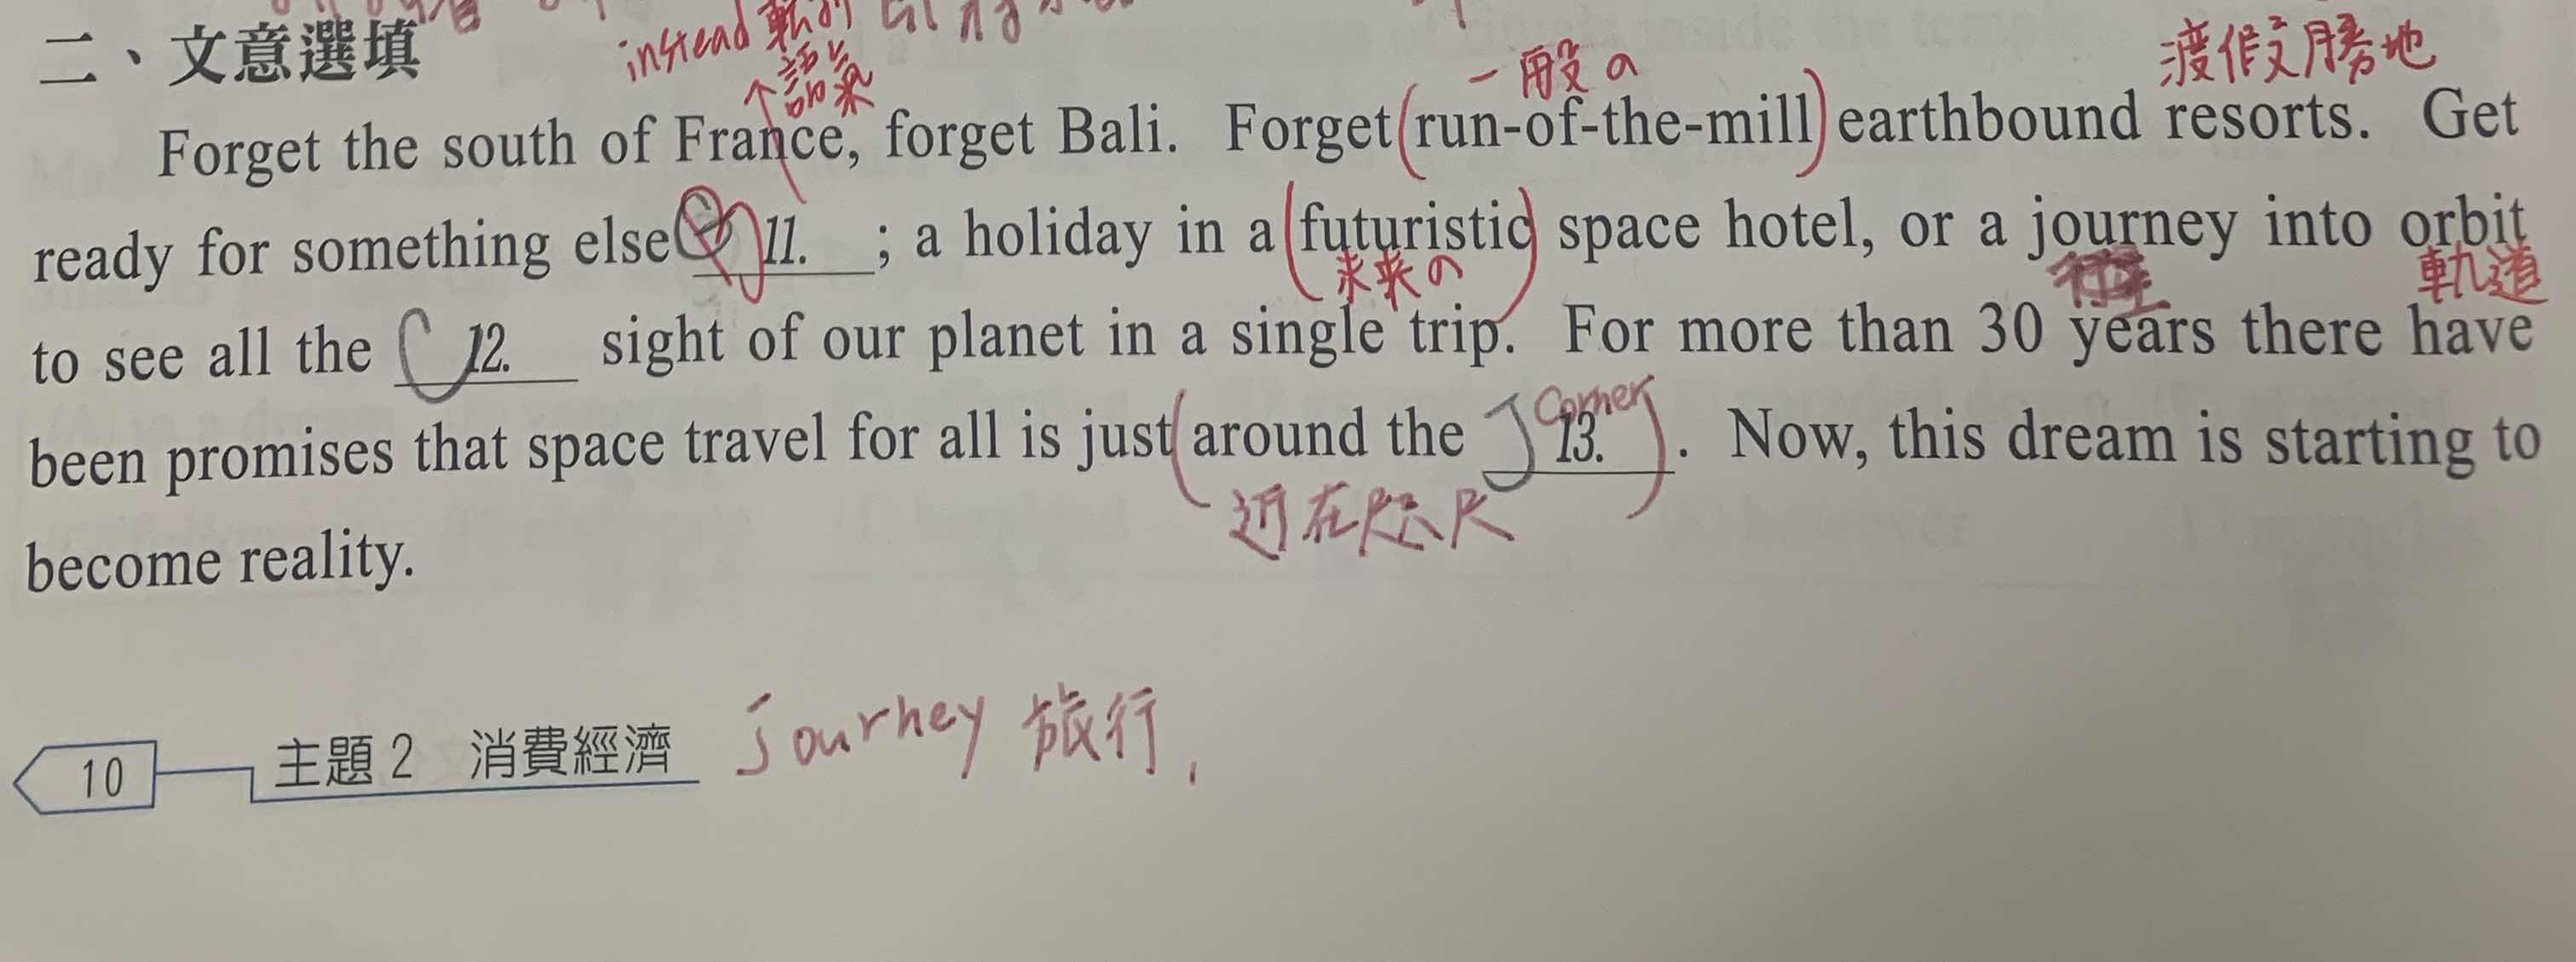 二、文意選填
instead 軟的
語氣
一般の
渡假勝地
Forget the south of France, forget Bali. Forget (run-of-the-mill) earthbound resorts. Get
ready for something else 11. ; a holiday in a (futuristic) space hotel, or a journey into orbit
未来の
軌道
to see all the C 12. sight of our planet in a single trip. For more than 30 years there have
Corner
been promises that space travel for all is just (around the J 13. ). Now, this dream is starting to
近在咫尺
become reality.
10 主題 2 消費經濟 journey 旅行,